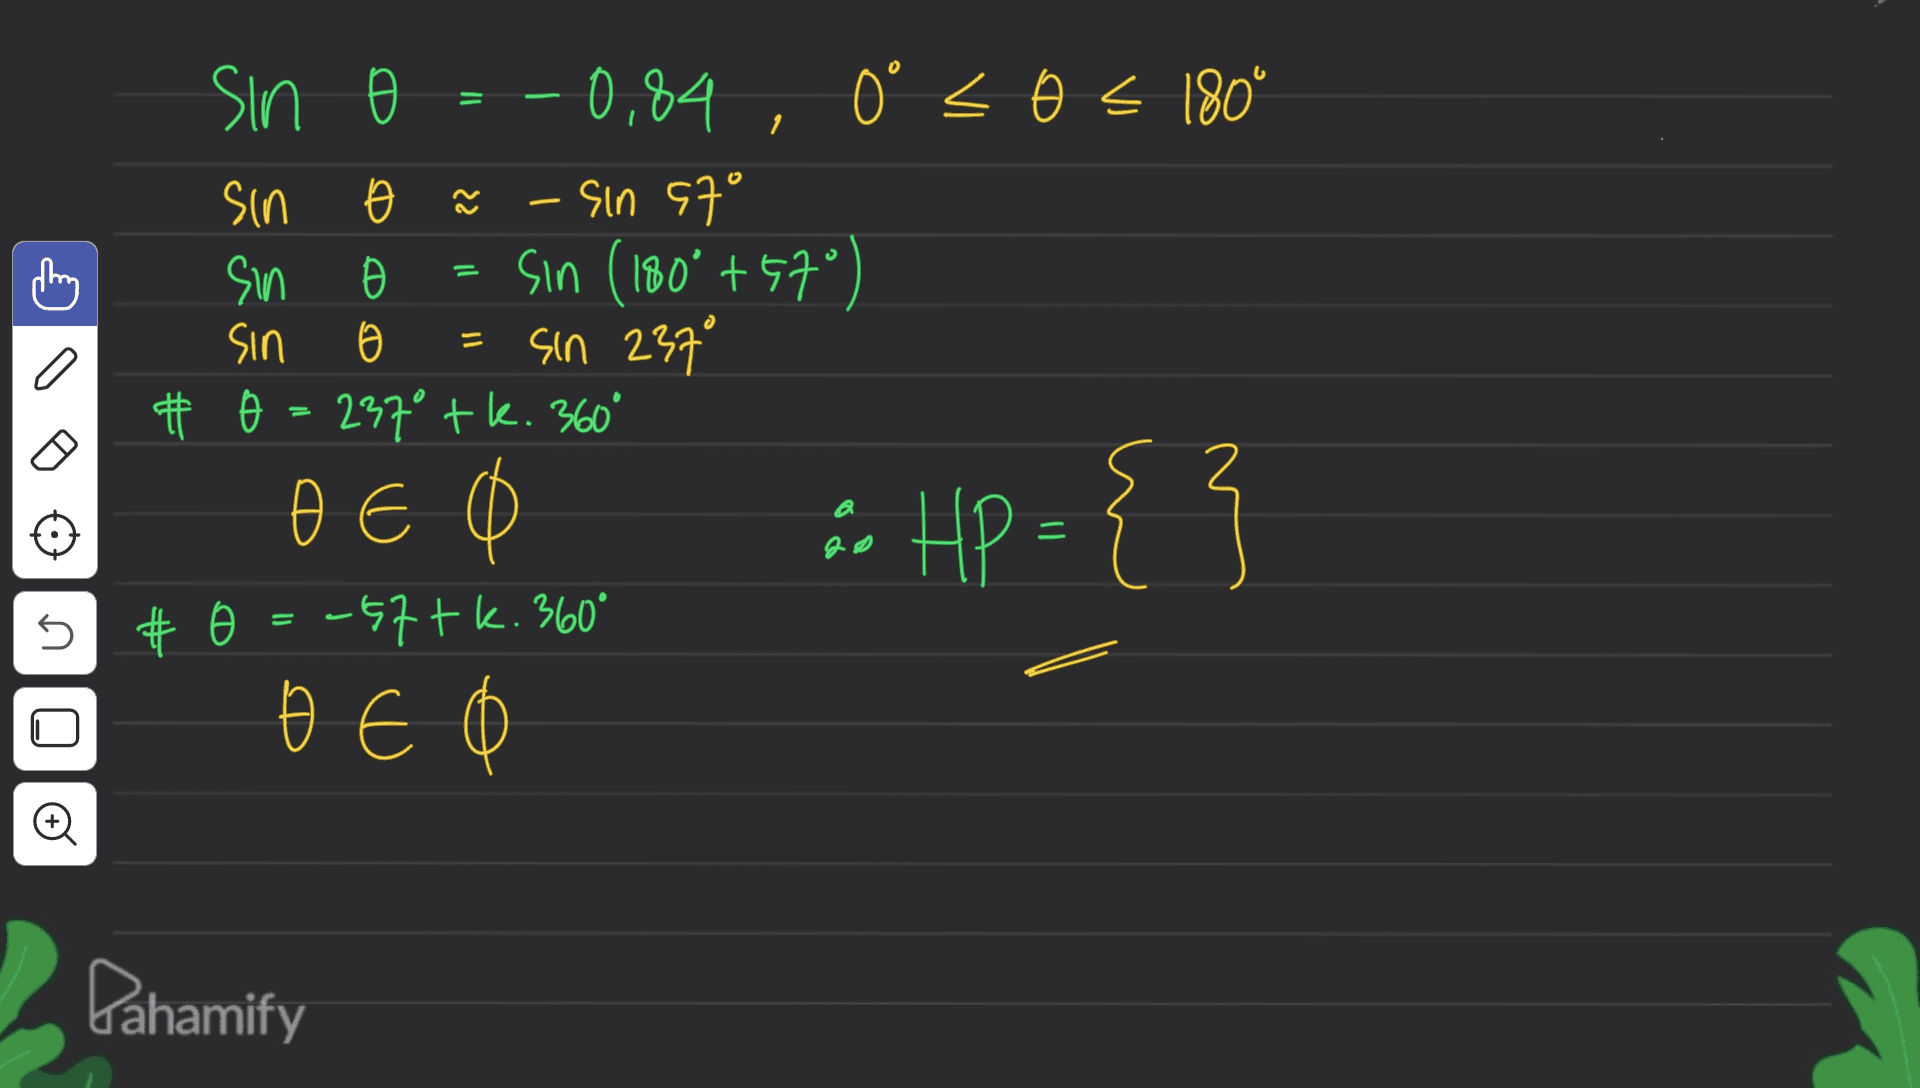 sin θ = - 0,84 , 0° ≤ θ ≤ 180°
sin θ ≈ - sin 57°
sin θ = sin (180° + 57°)
sin θ = sin 237°
# θ = 237° + k. 360°
θ ∈ ∅
# θ = -57 + k. 360°
θ ∈ ∅
∴ HP = { }
Pahamify